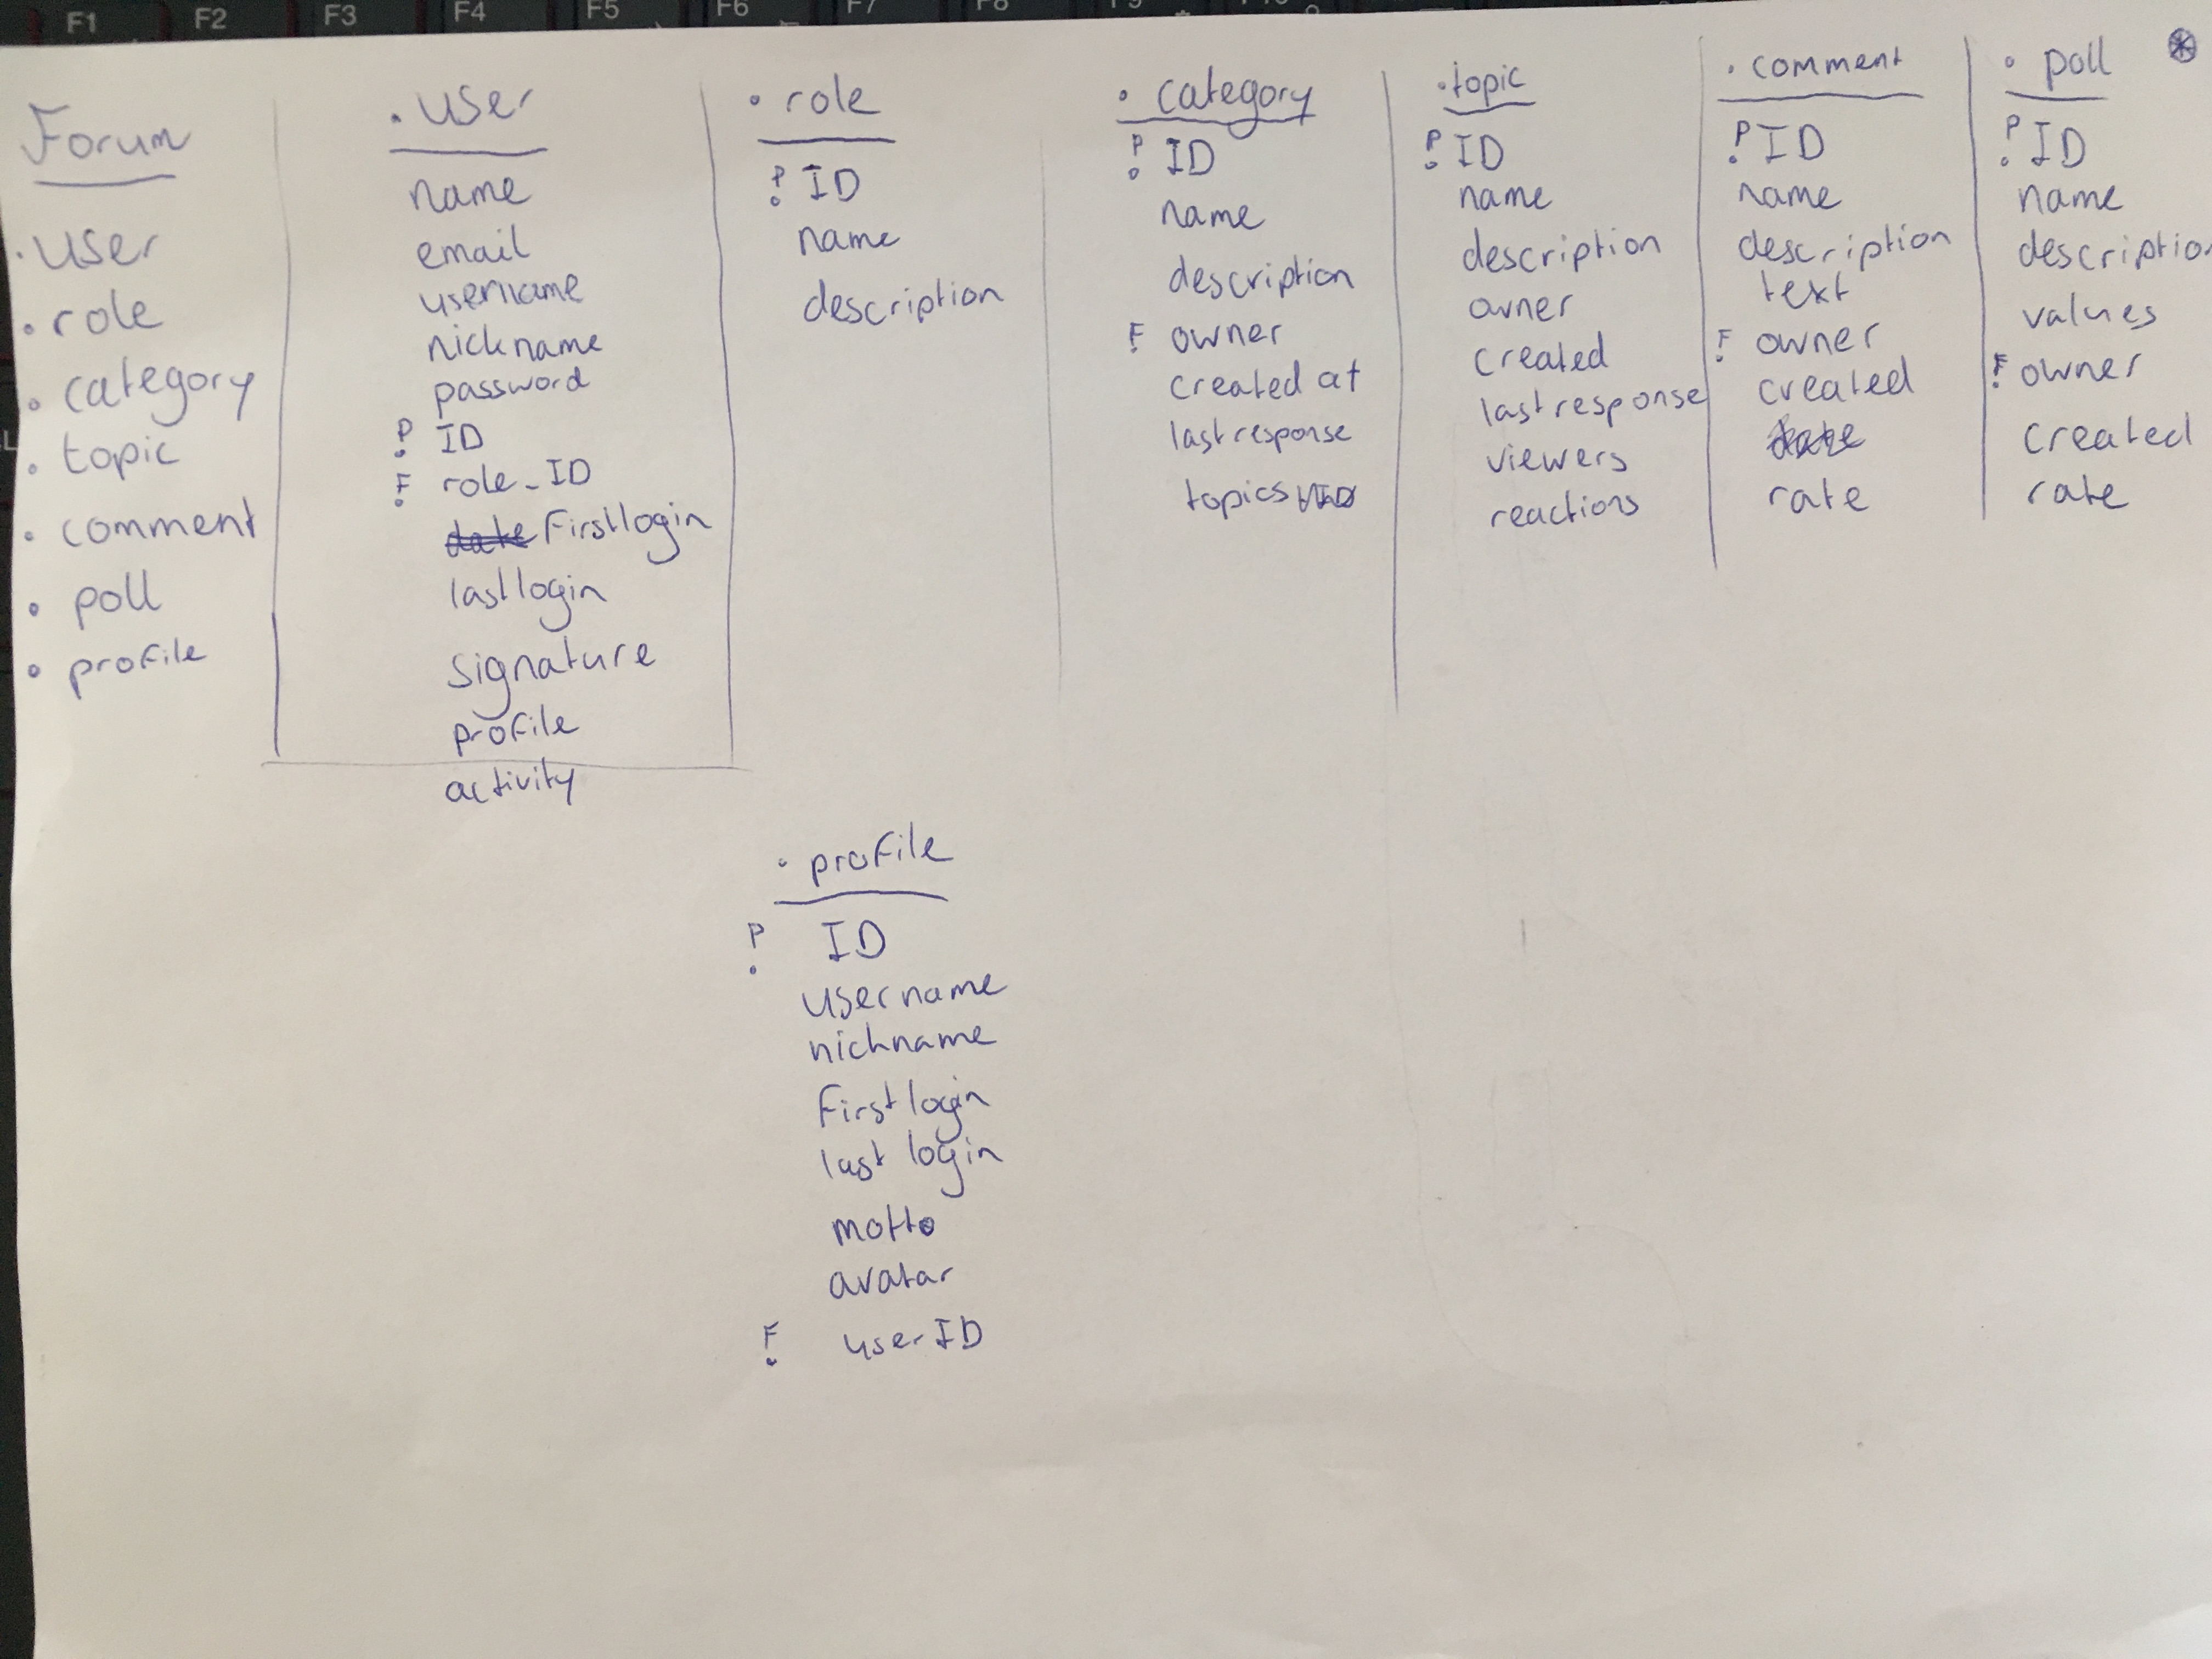 F1 F2 F3 F4 F5 F6 F7 F8
Forum
· user
· role
· category
· topic
· comment
· poll
· profile
· user
name
email
username
nickname
password
P ID
F role_ID
date Firstlogin
lastlogin
signature
profile
activity
· role
P ID
name
description
· category
P ID
name
description
F owner
created at
lastresponse
topics
· topic
P ID
name
description
owner
created
lastresponse
viewers
reactions
· comment
P ID
name
description
text
F owner
created
date
rate
· poll
P ID
name
description
values
F owner
created
rate
· profile
P ID
username
nickname
First login
last login
motto
avatar
F userID